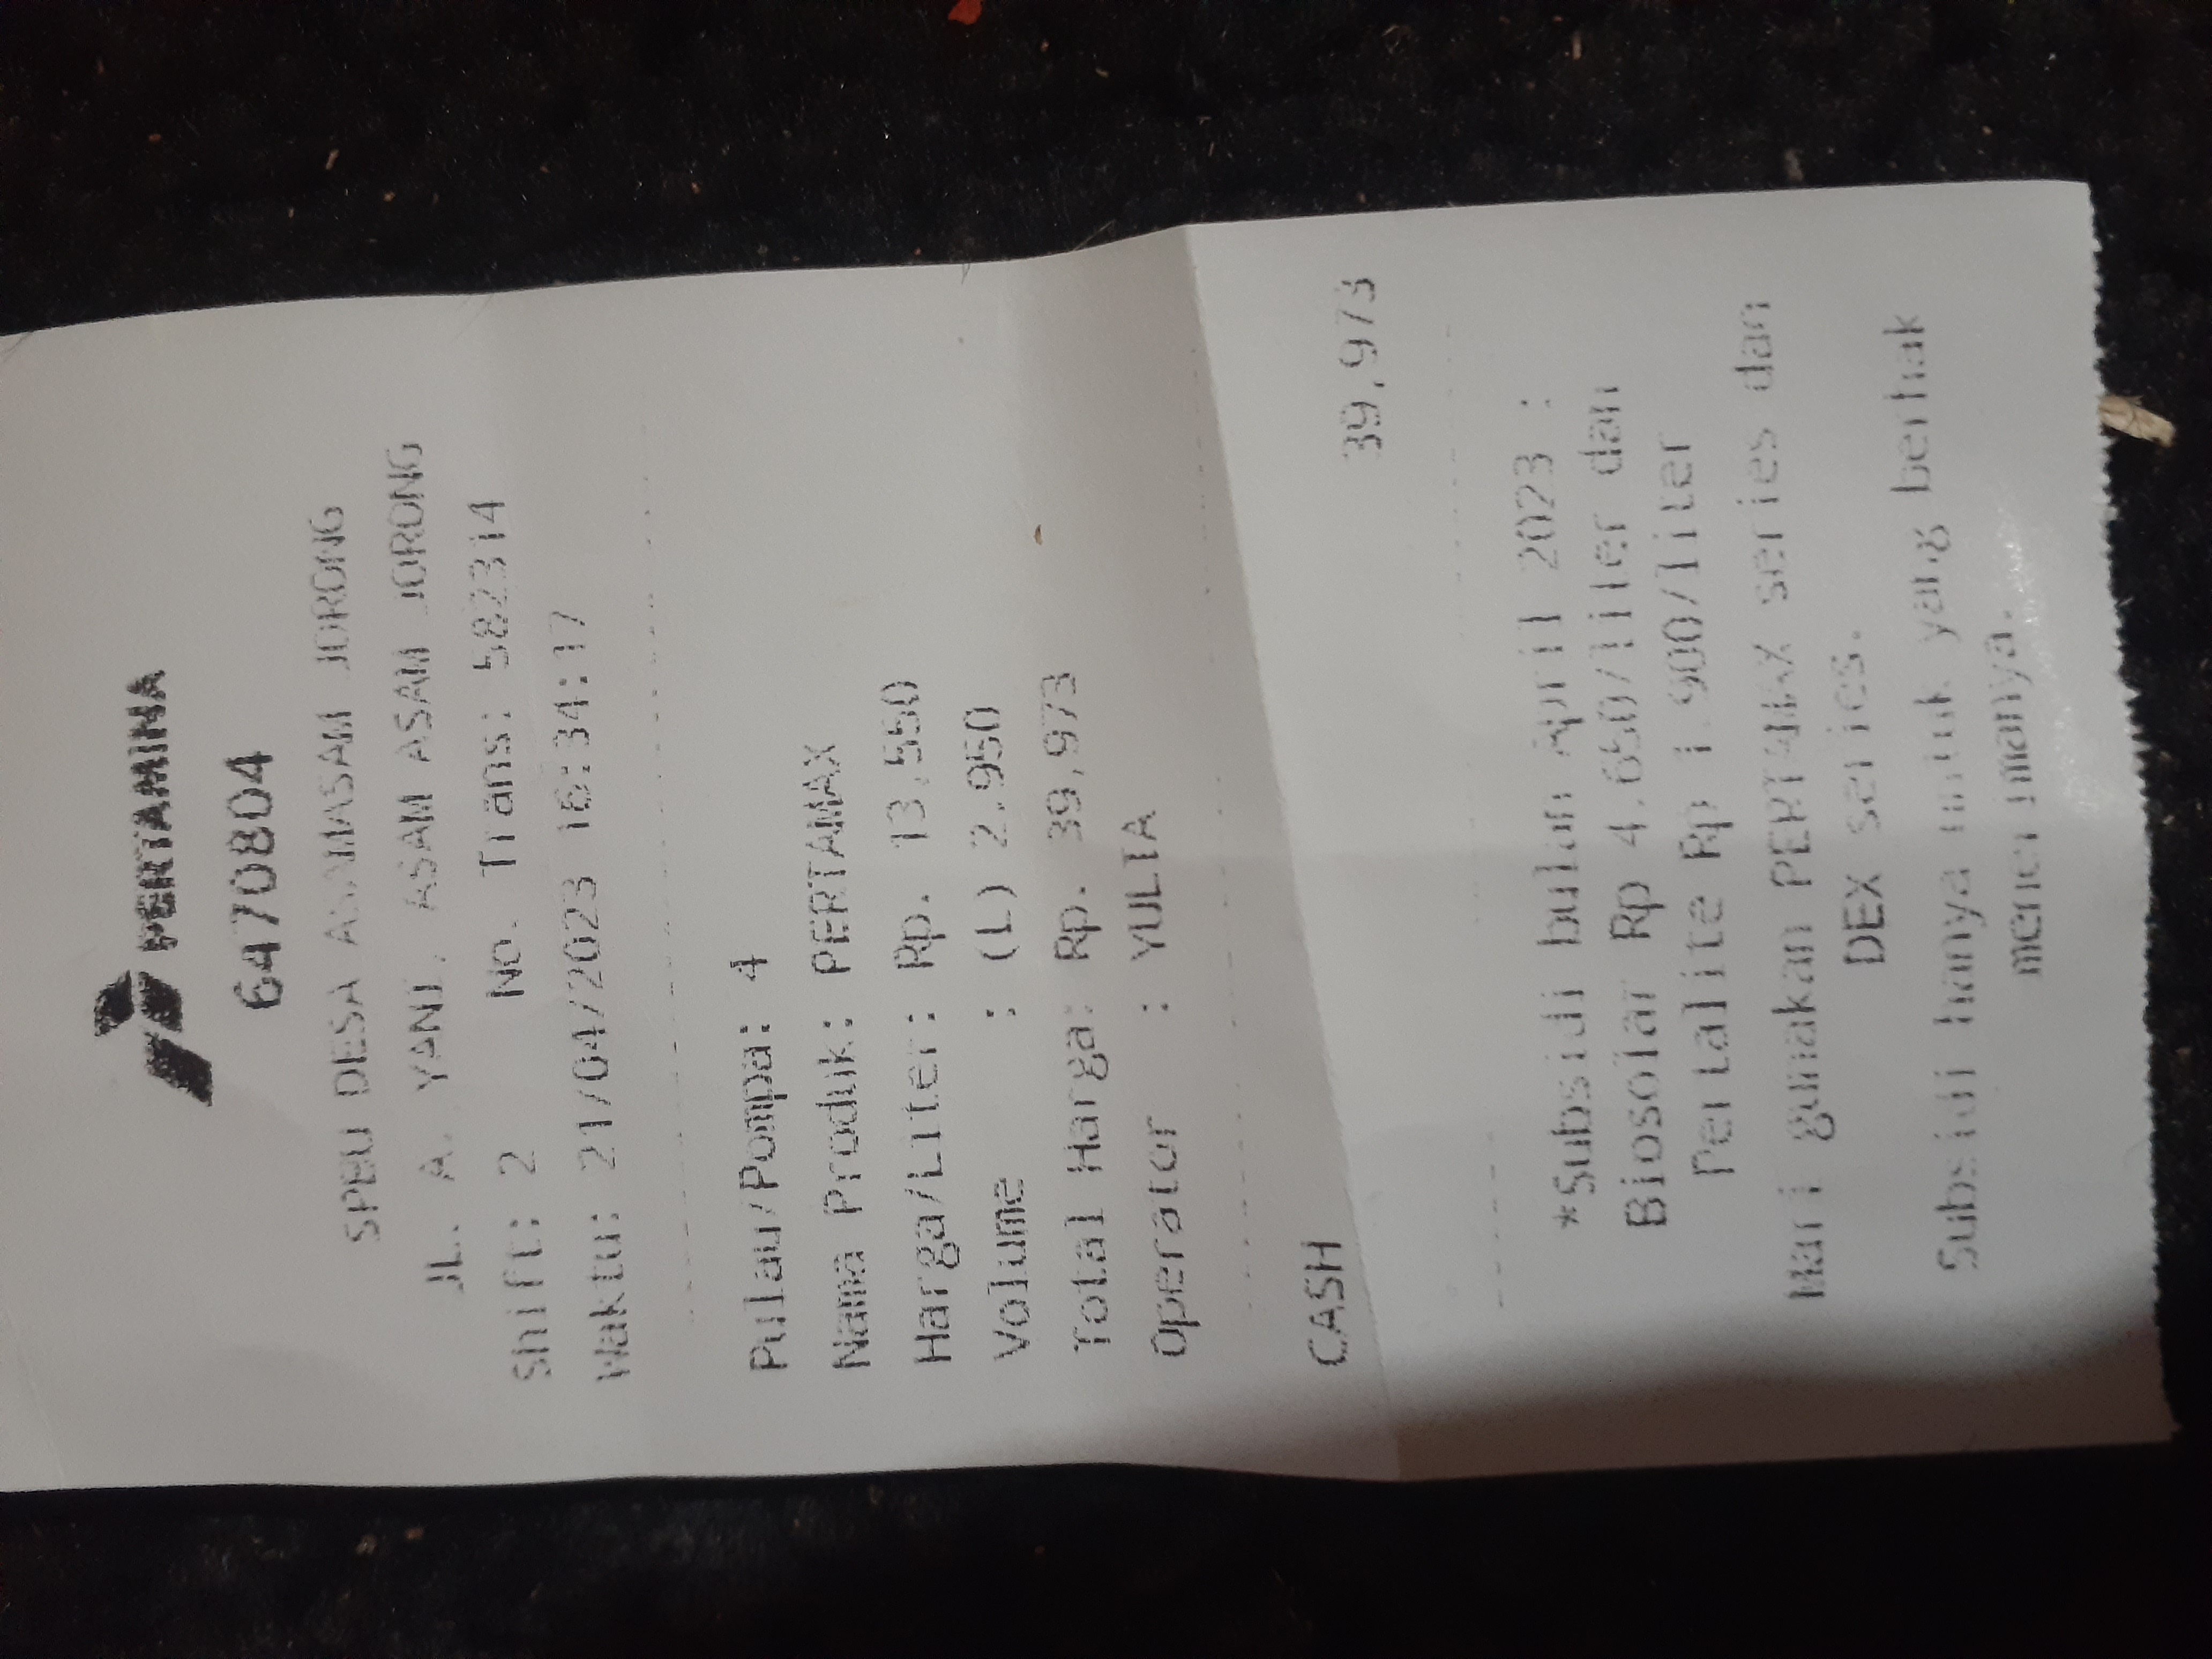 PERTAMINA
6470804
SPBU DESA ASAMASAM JORONG
JL. A. YANI, ASAM ASAM JORONG
Shift: 2 No. Trans: 582314
Waktu: 21/04/2023 16:34:17
Pulau/Pompa: 4
Nama Produk: PERTAMAX
Harga/Liter: Rp. 13,550
Volume : (L) 2.950
Total Harga: Rp. 39,973
Operator : YULIA
CASH 39,973
*Subsidi bulan April 2023 :
Biosolar Rp 4.650/liter dan
Pertalite Rp 1.900/liter
Mari gunakan PERTAMAX series dan
DEX series.
Subsidi hanya untuk yang berhak
menerimanya.